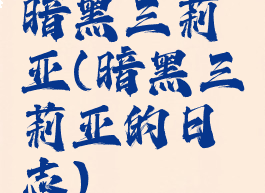 暗黑三莉
亚(暗黑三
莉亚的日
志)